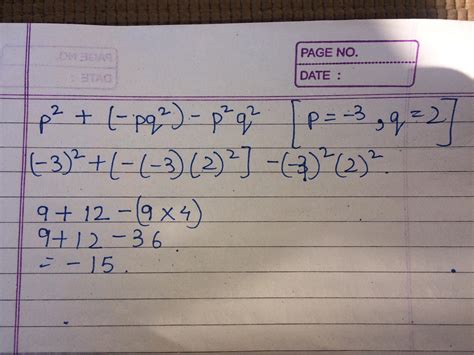 PAGE NO.
DATE :
PAGE NO.
DATE :
p² + (-pq²) - p²q² [p = -3, q = 2]
(-3)² + [-(-3)(2)²] - (-3)²(2)².
9 + 12 - (9 × 4)
9 + 12 - 36
= - 15.